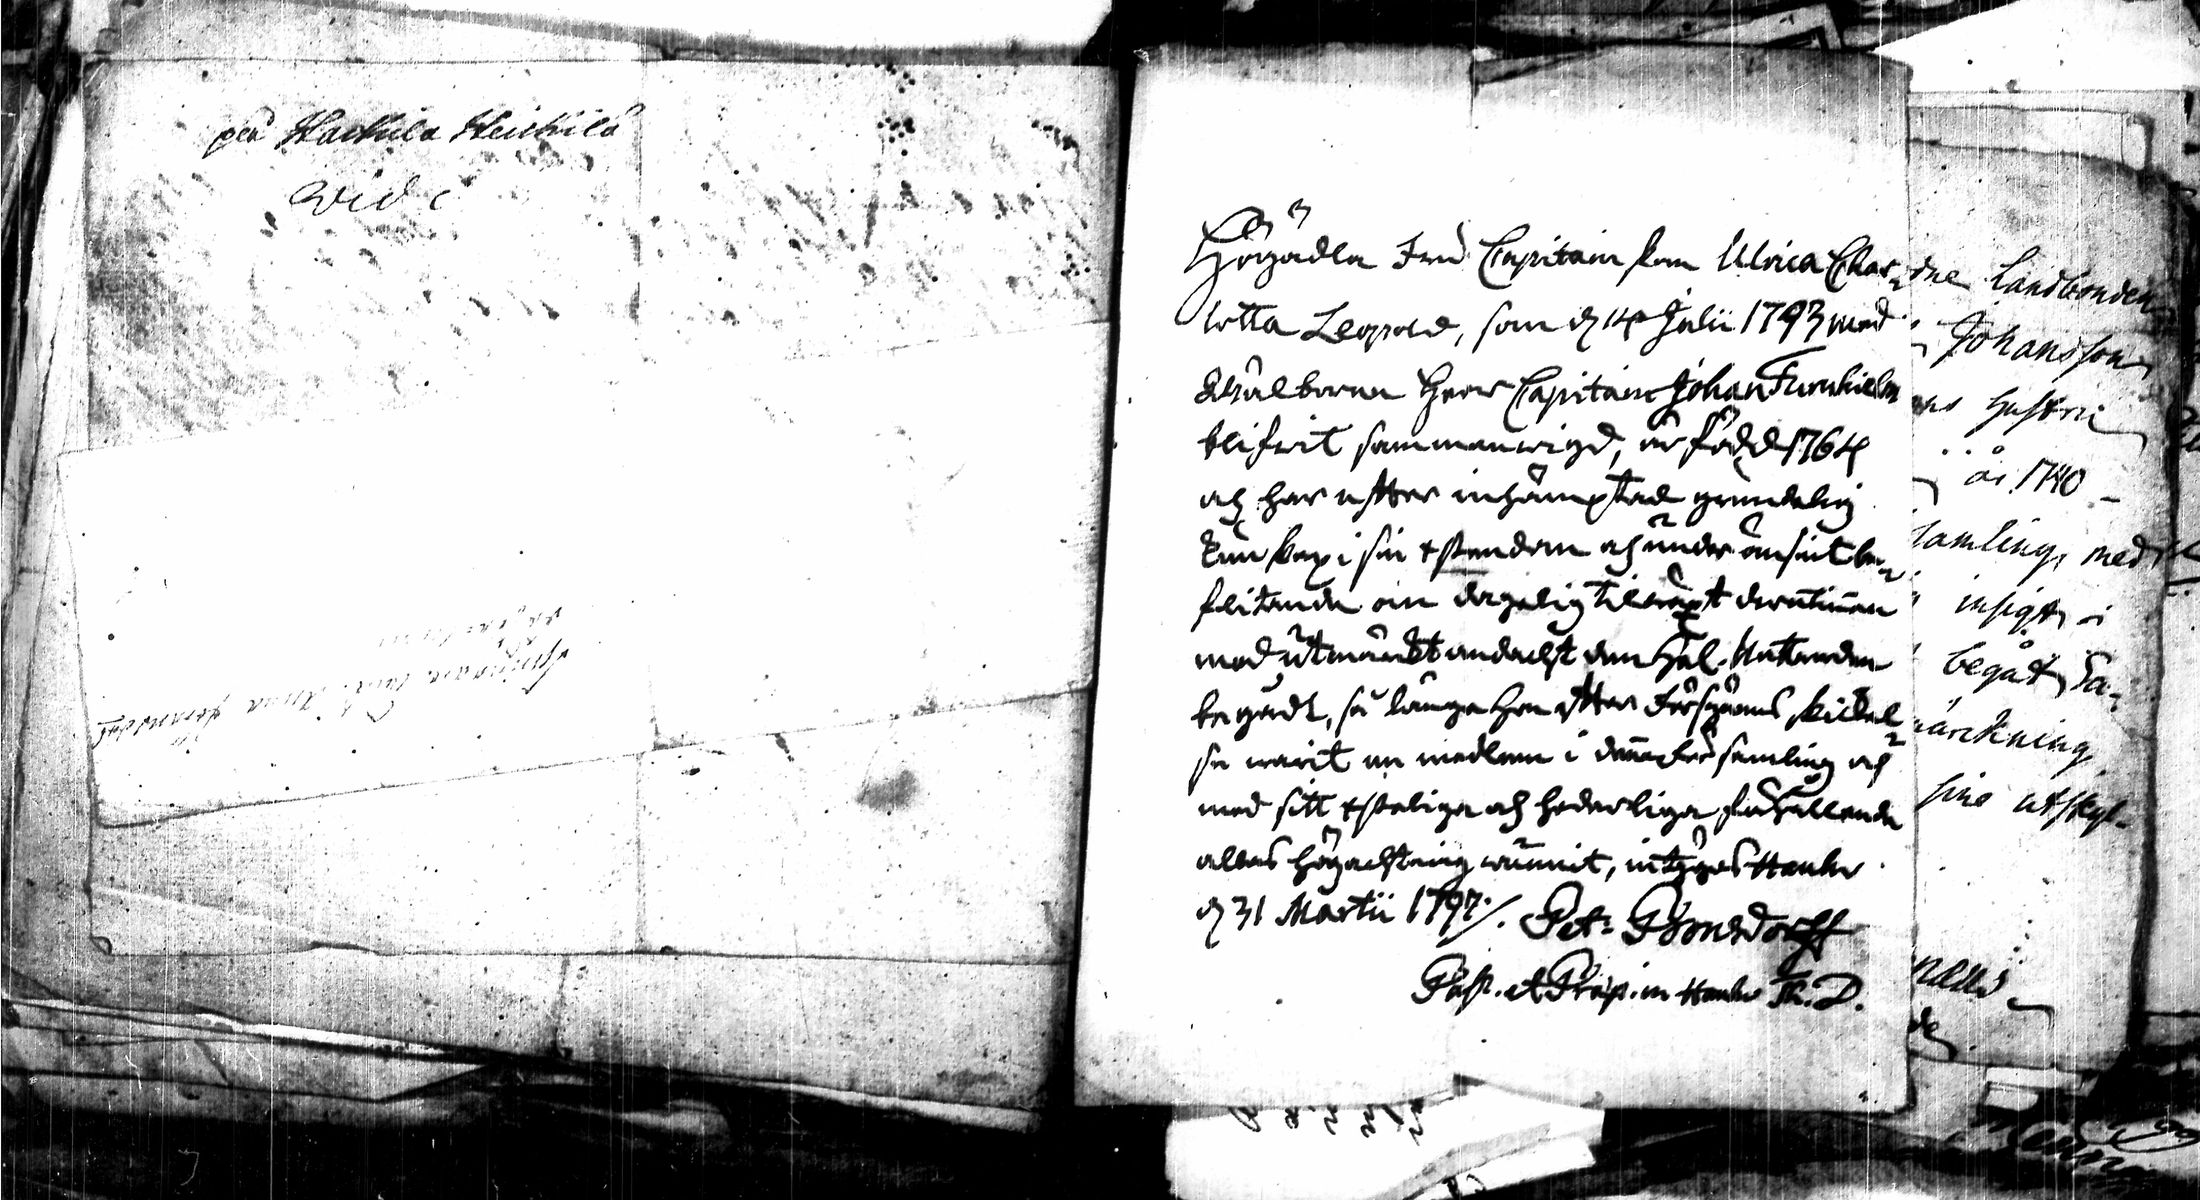 på Hackila Heickilä
Wid
Högädla Fru Capitainskan Ulrica Char-
lotta Leopold, som d 14 Julii 1793 med
Wälborna Herr Capitain Johan Furuhielm
blifwit sammanwigd, är född 1764
och har efter inhämptad grundelig
kunskap i sin Christendom och under ömsint be-
flitande om dageligt derutinnan
med utmärkt andackt den Hel. Nattwarden
begådt, så länge hon efter Försynens skickel-
se warit en medlem i denna Församling och
med sitt Christeliga och hederliga förhållande
allas högachtning wunnit, intygas Hauho
d 31 Martii 1797./. Pet. Bonsdorff
Past. et Præp. in Hauho Th. D.
Landbonden
Johansson
hustru
år 1740
samling, med
insigt i
begåt, Sa-
märckning
sine utskyl-